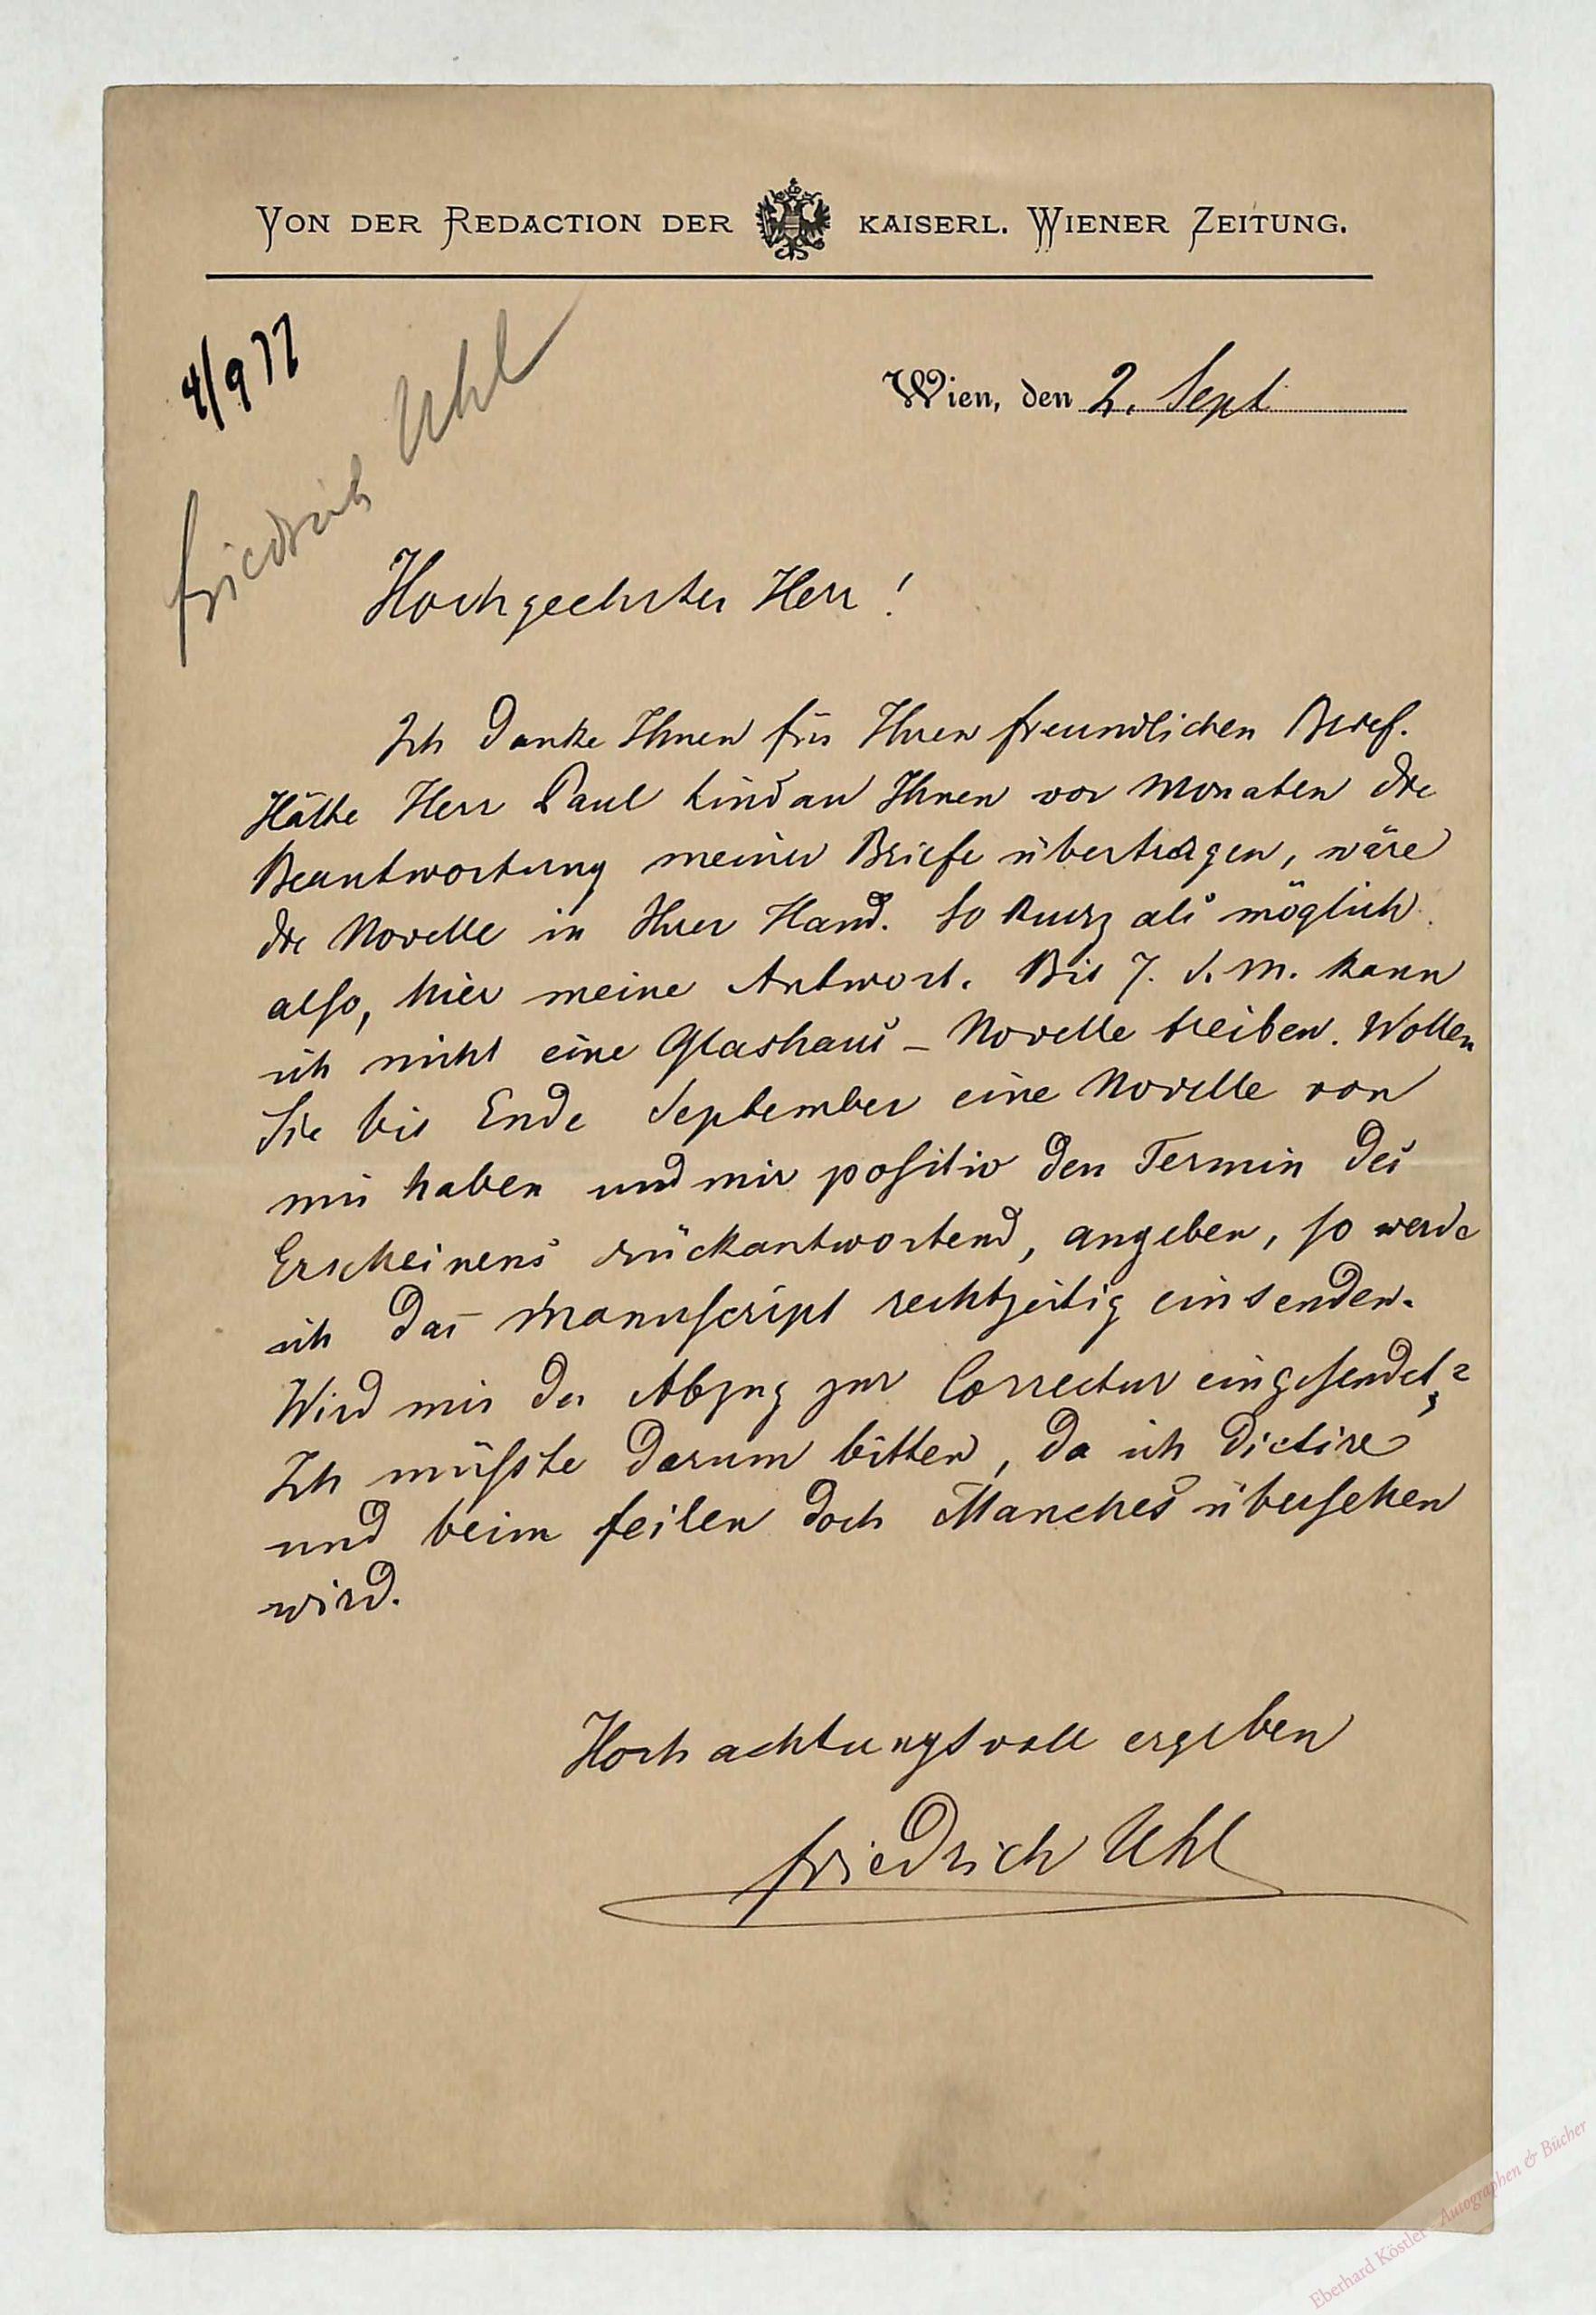 VON DER REDACTION DER KAISERL. WIENER ZEITUNG.
4/9 77
Wien, den 2. Sept
Friedrich Uhl
Hochgeehrter Herr!
Ich danke Ihnen für Ihren freundlichen Brief.
Hätte Herr Paul Lindau Ihnen vor Monaten die
Beantwortung meiner Briefe übertragen, wäre
die Novelle in Ihrer Hand. So kurz als möglich
also, hier meine Antwort. Bis 7. d. M. kann
ich nicht eine Glashaus-Novelle treiben. Wollen
Sie bis Ende September eine Novelle von
mir haben und mir positiv den Termin des
Erscheinens rückantwortend, angeben, so werde
ich das Manuscript rechtzeitig einsenden.
Wird mir der Abzug zur Correctur eingesendet?
Ich müsste darum bitten, da ich dictire
und beim feilen doch Manches übersehen
wird.
Hochachtungsvoll ergeben
Friedrich Uhl
Eberhard Köstler Autographen & Bücher